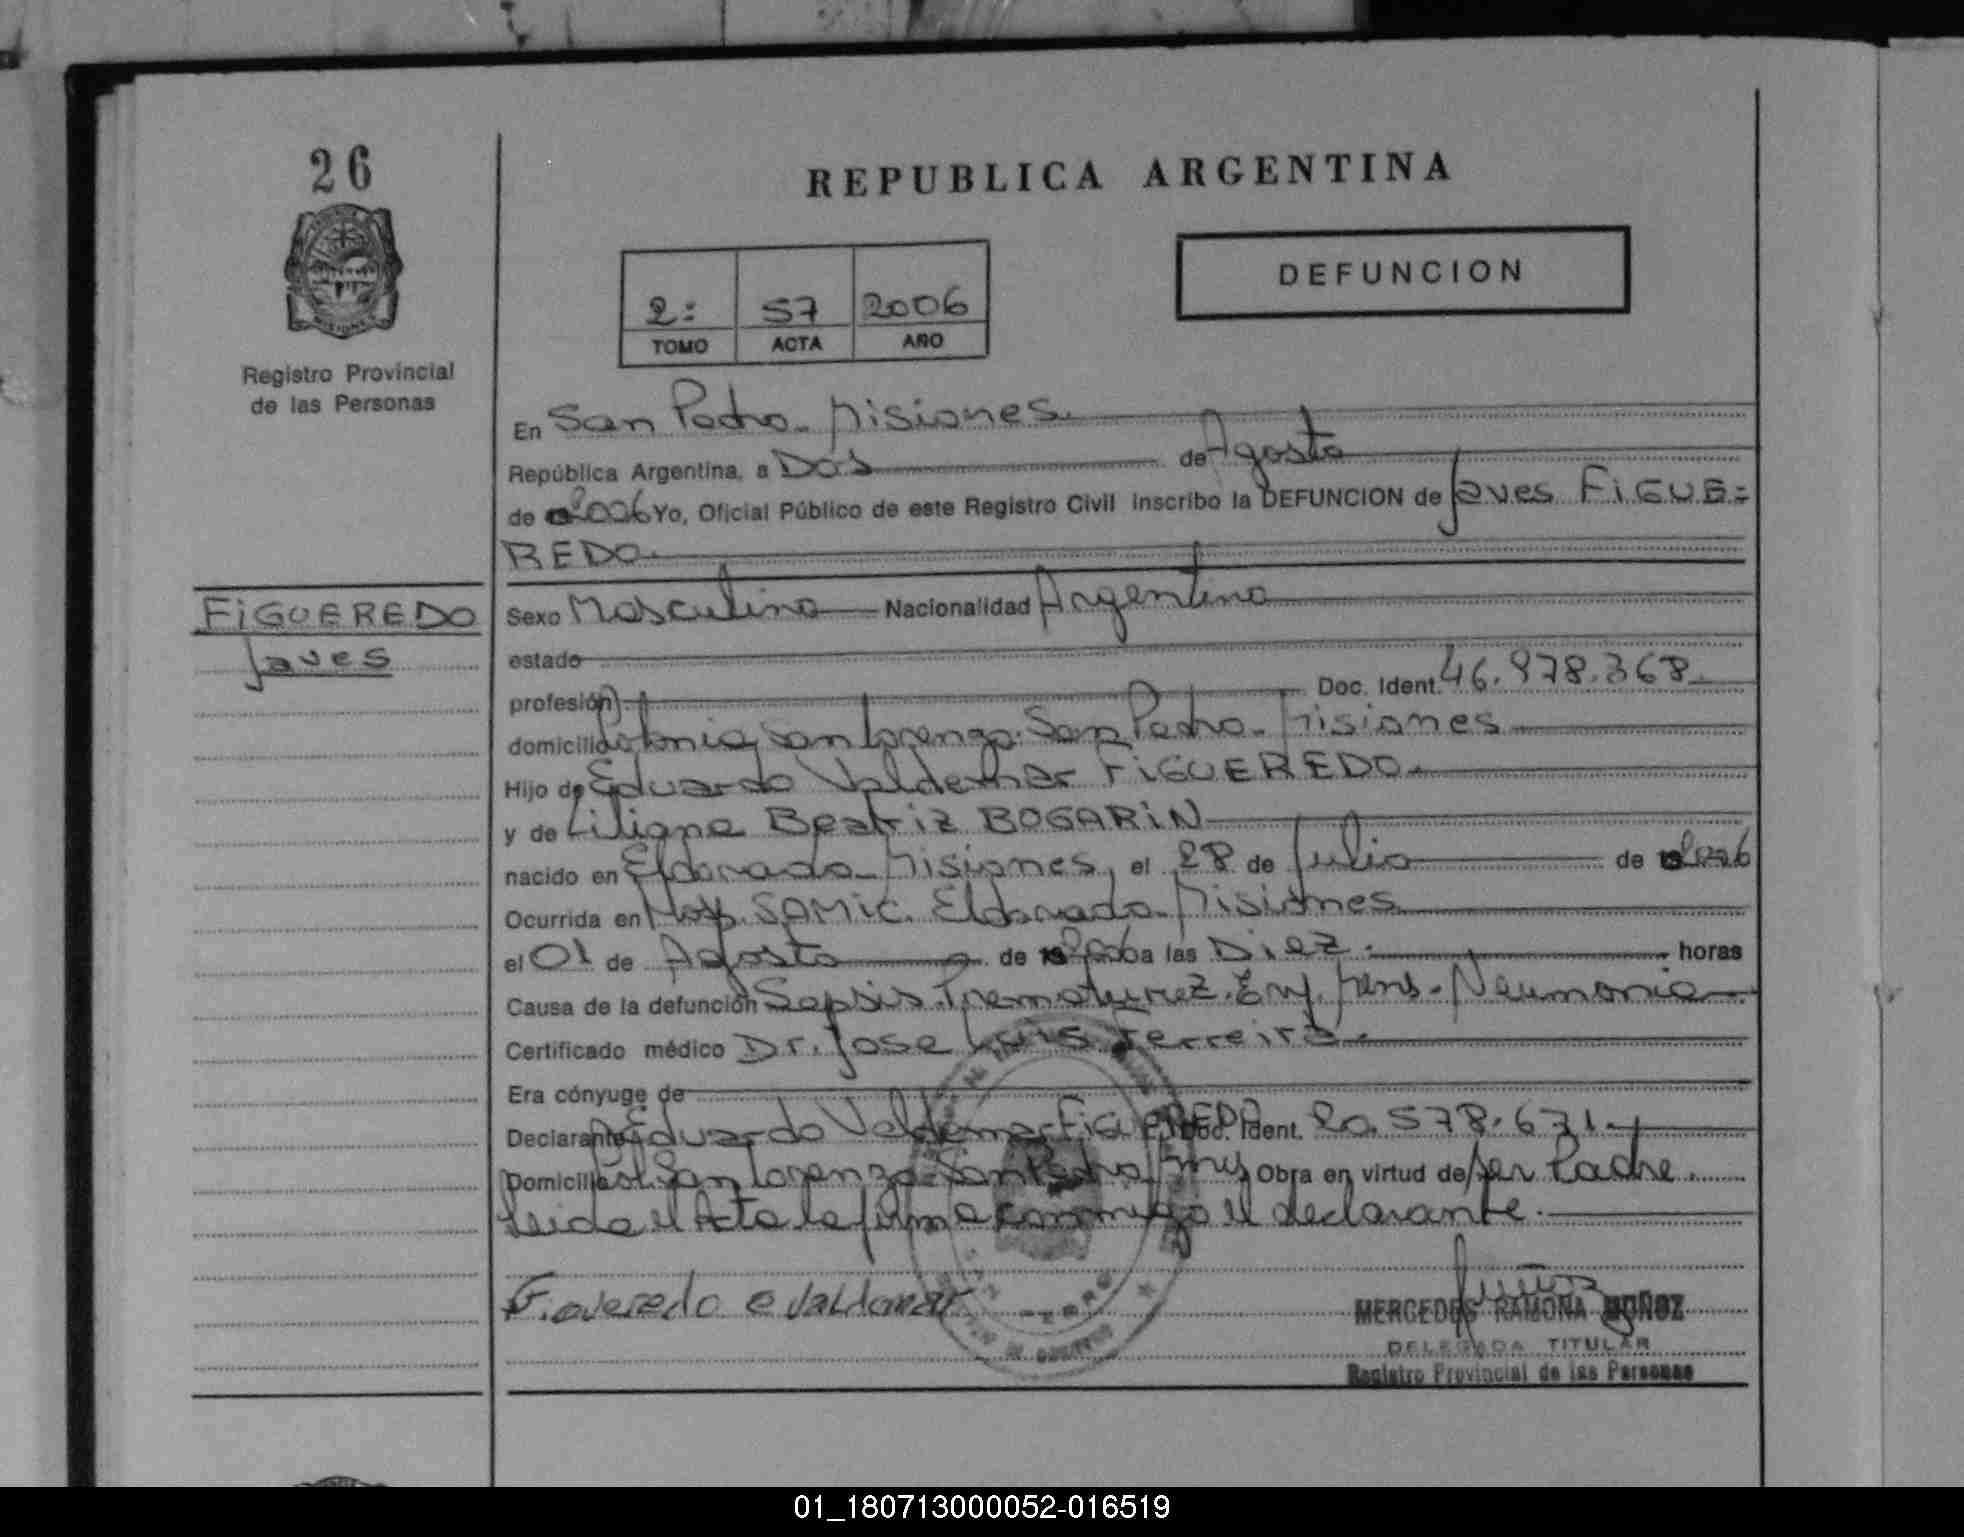 26
REPUBLICA ARGENTINA
DEFUNCION
2: 57 2006
TOMO ACTA AÑO
Registro Provincial
de las Personas
En San Pedro - Misiones.
República Argentina, a Dos de Agosto
de 2006 Yo, Oficial Público de este Registro Civil inscribo la DEFUNCION de Javes FIGUE=
REDO.
FIGUEREDO
Javes
Sexo Masculino Nacionalidad Argentina
estado
profesión Doc. Ident. 46.978.368.
domicilio Colonia San Lorenzo. San Pedro - Misiones
Hijo de Eduardo Valdemar FIGUEREDO.
y de Liliana Beatriz BOGARIN
nacido en Eldorado - Misiones, el 28 de Julio de 2006
Ocurrida en Hosp. SAMIC. Eldorado - Misiones
el 01 de Agosto de 2006 a las Diez. horas
Causa de la defunción Sepsis. Prematurez. Enf. - Neumonia
Certificado médico Dr. Jose Luis Ferreira.
Era cónyuge de
Declarante Eduardo Valdemar FIGUEREDO Doc. Ident. 20.578.671.
Domicilio Col. San Lorenzo - San Pedro Mnes Obra en virtud de ser Padre.
Leida el Acta la firma conmigo el declarante.
Figueredo e Valdemar
MERCEDES RAMONA MUÑOZ
DELEGADA TITULAR
Registro Provincial de las Personas
01_180713000052-016519